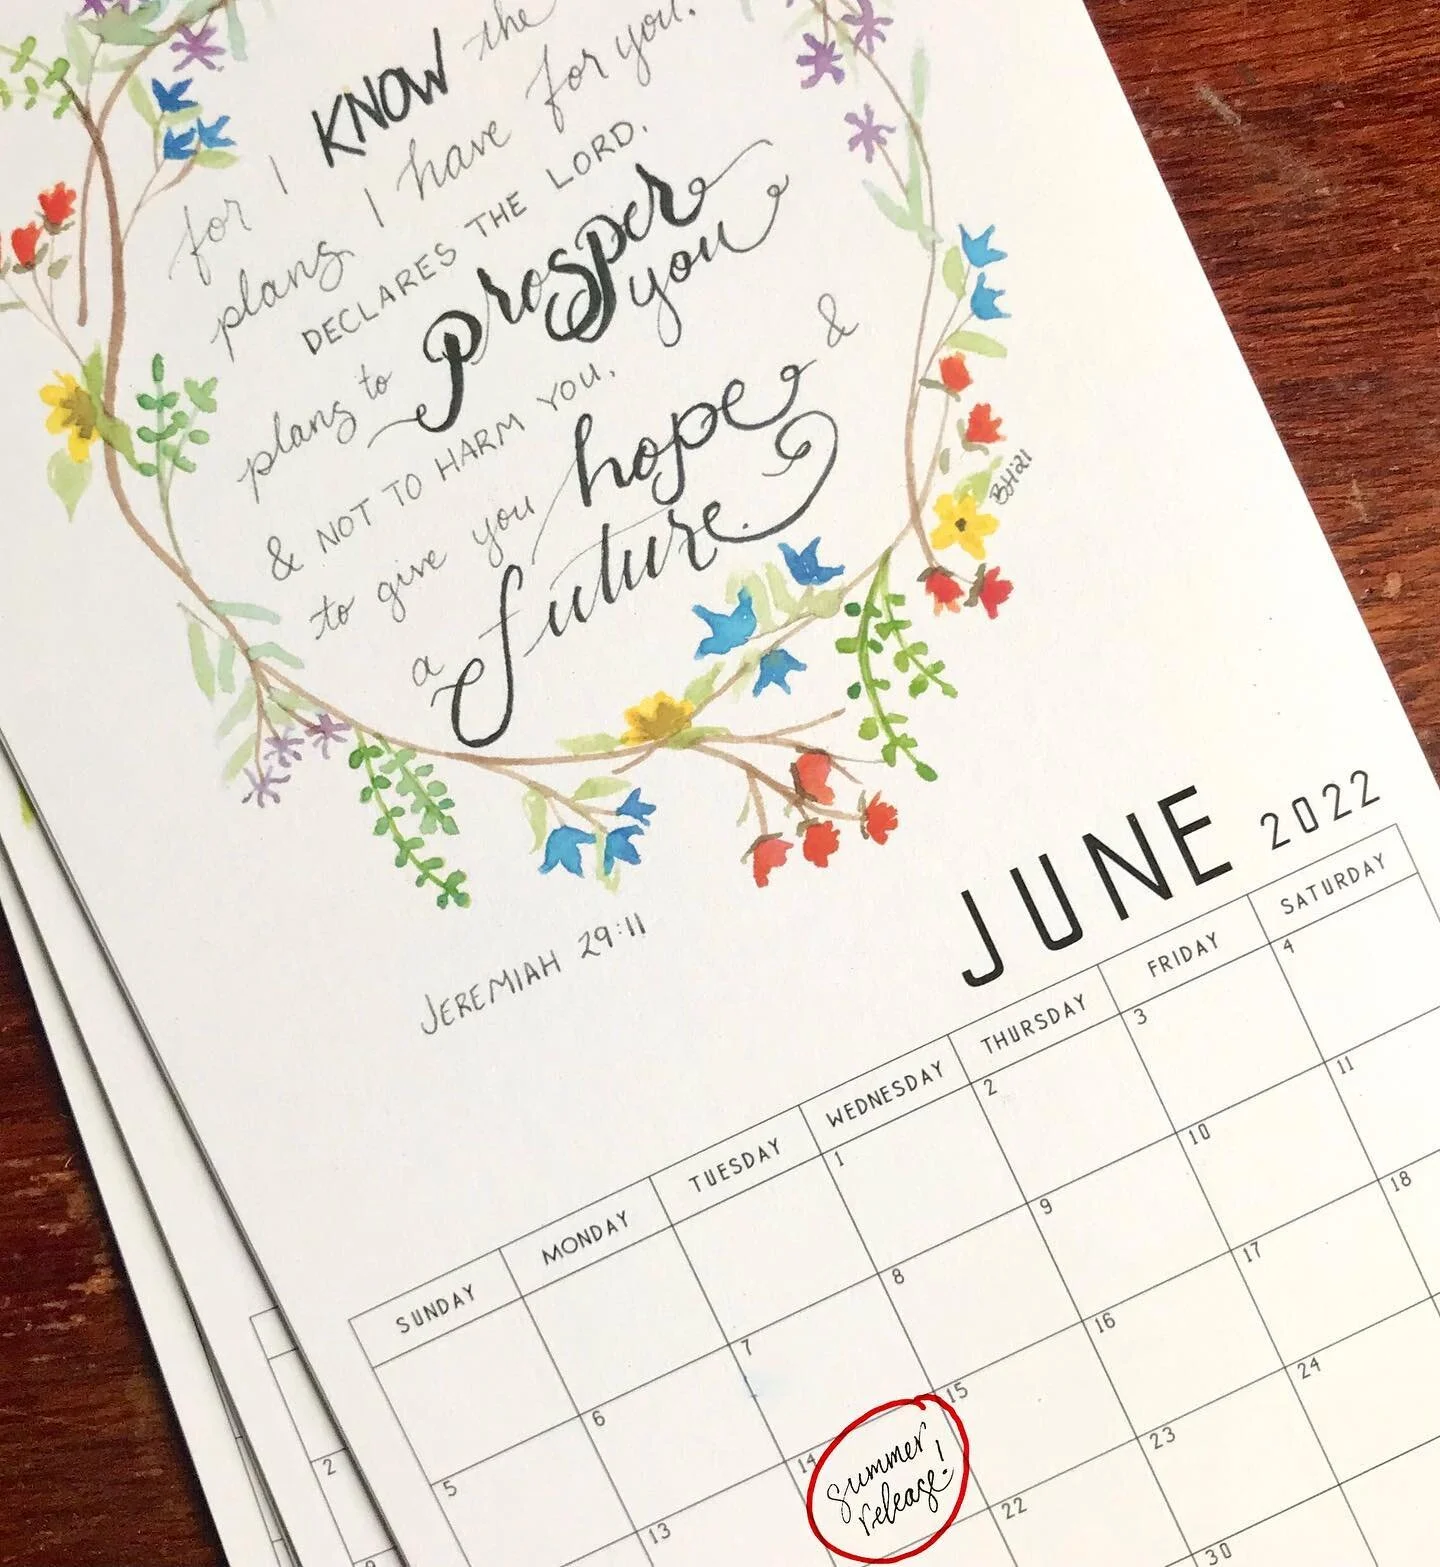 for I KNOW the
plans I have for you.
DECLARES THE LORD.
plans to prosper
you
& NOT TO HARM YOU.
to give you hope &
a future.
BH21
JEREMIAH 29:11
JUNE 2022
SUNDAY MONDAY TUESDAY WEDNESDAY THURSDAY FRIDAY SATURDAY
1 2 3 4
5 6 7 8 9 10 11
13 14 15 16 17 18
22 23 24
30
summer
release!
2